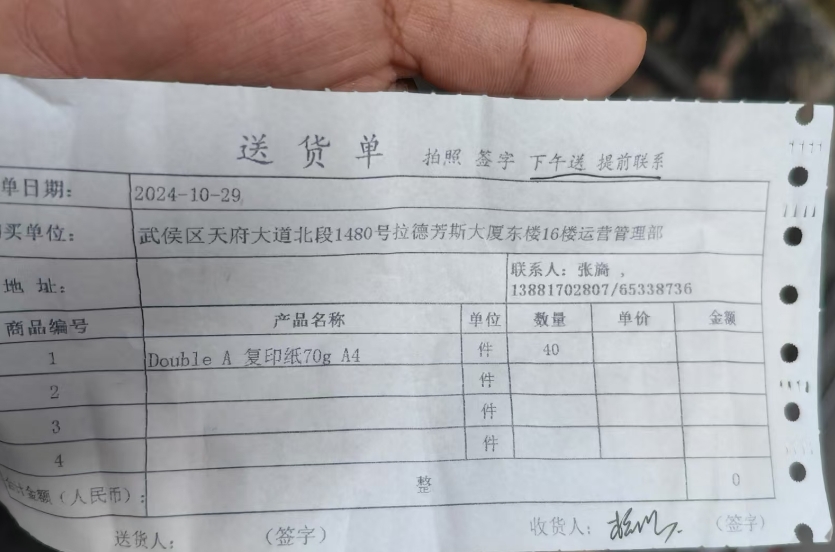 送货单 拍照 签字 下午送 提前联系
单日期: 2024-10-29
买单位: 武侯区天府大道北段1480号拉德芳斯大厦东楼16楼运营管理部
地 址: 联系人: 张滴 ,
13881702807/65338736
商品编号 产品名称 单位 数量 单价 金额
1 Double A 复印纸70g A4 件 40
2 件
3 件
4 件
金额(人民币): 整 0
送货人: (签字) 收货人: (签字)